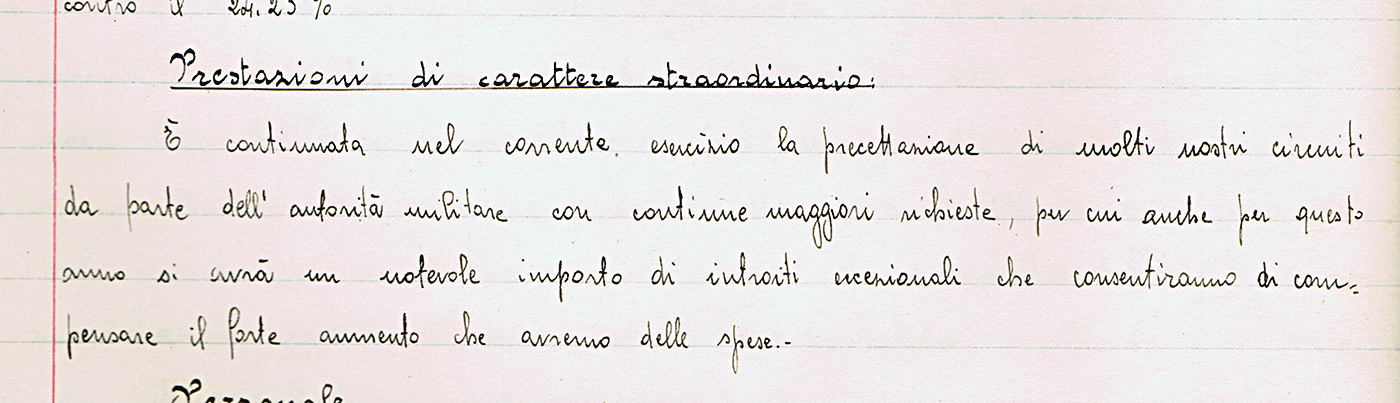 contro il 24.25 %
Prestazioni di carattere straordinario:
È continuata nel corrente esercizio la precettazione di molti nostri circuiti
da parte dell' autorità militare con continue maggiori richieste, per cui anche per questo
anno si avrà un notevole importo di introiti eccezionali che consentiranno di com=
pensare il forte aumento che avremo delle spese.-
Personale